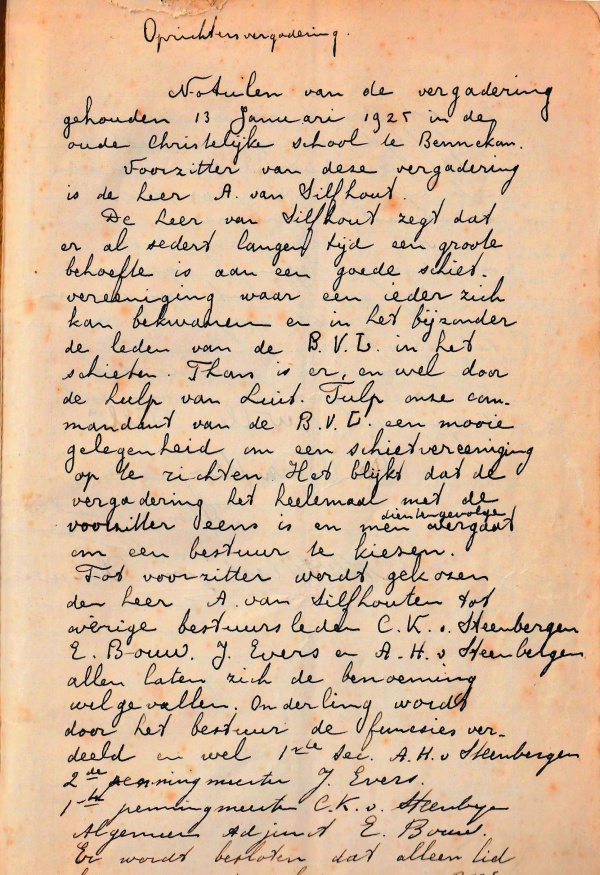 Oprichtersvergadering.
Notulen van de vergadering
gehouden 13 Januari 1925 in de
oude Christelijke school te Bennekom.
Voorzitter van deze vergadering
is de heer A. van Silfhout.
De heer van Silfhout zegt dat
er al sedert langen tijd een groote
behoefte is aan een goede schiet-
vereeniging waar een ieder zich
kan bekwamen en in het bijzonder
de leden van de B.V.L. in het
schieten. Thans is er, en wel door
de hulp van Luit. Tulp onze com-
mandant van de B.V.L. een mooie
gelegenheid om een schietvereeniging
op te richten Het blijkt dat de
vergadering het heelemaal met de
voorzitter eens is en men dientengevolge overgaat
om een bestuur te kiesen.
Tot voorzitter wordt gekozen
den heer A. van Silfhouten tot
overige bestuursleden C.K. v. Steenbergen
E. Bouw. J. Evers en A.H. v Steenbergen
allen laten zich de benoeming
welgevallen. Onderling wordt
door het bestuur de funcsies ver-
deeld en wel 1ste Sec. A.H. v Steenbergen
2de penningmeester J. Evers.
1ste penningmeester C.K. v. Steenbergen
Algemeen Adjunct E. Bouw.
Er wordt besloten dat alleen lid